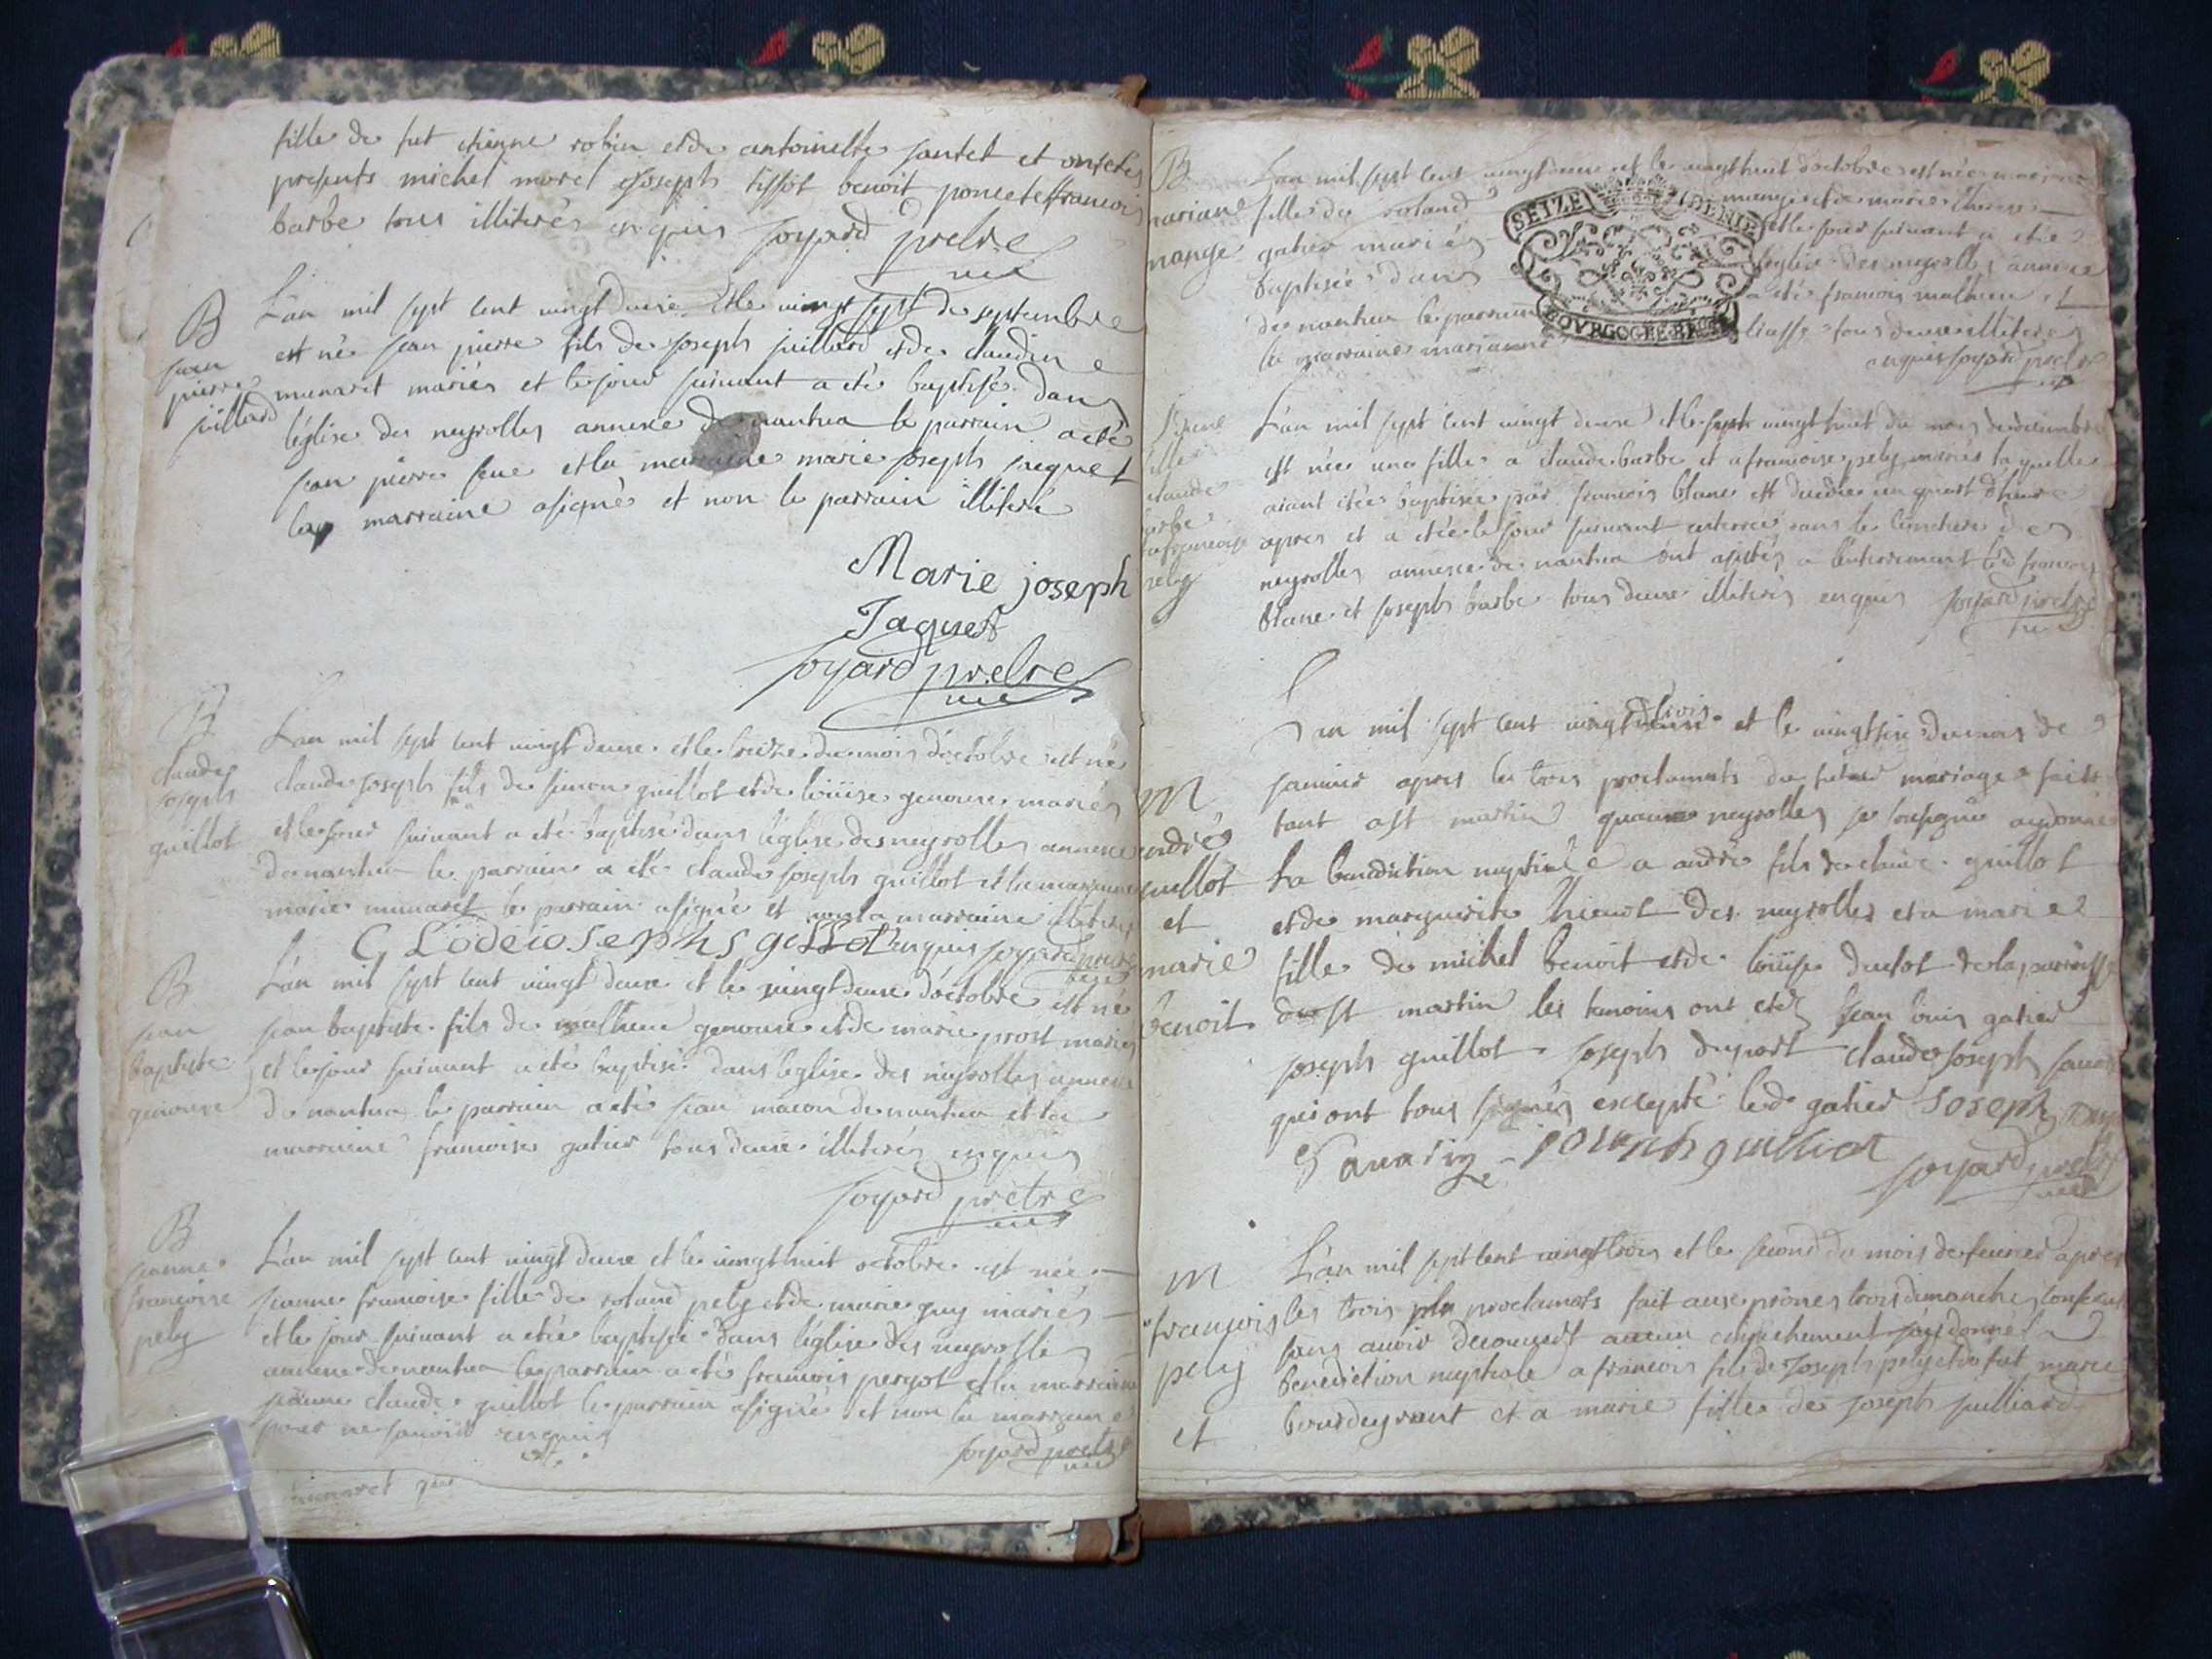 fille de fut etienne robin et de antoinette jantet et ont etes
presents michel morel joseph tissot benoit poncet et francois
barbe tous illiterés enquis joyard pretre
B
jean
pierre
juillard
L'an mil sept cent vingt deux et le vingt sept de septembre
est né jean pierre fils de joseph juillard et de claudine
munaret mariés et le jour suivant a eté baptisé dans
l'église des neyrolles annexe de nantua le parrain a eté
jean pierre et la marraine marie joseph jaquet
la marraine a signé et non le parrain illiteré
Marie joseph
Jaquet
joyard pretre
B
claude
joseph
guillot
L'an mil sept cent vingt deux et le treize du mois d'octobre est né
claude joseph fils de simon guillot et de loüise genoux mariés
et le jour suivant a eté baptisé dans l'église des neyrolles annexe
de nantua le parrain a eté claude joseph guillot et la marraine
marie munaret le parrain a signé et non la marraine illiterée
C Lodeiosephs gillot enquis joyard pretre
B
jean
baptiste
genoux
L'an mil sept cent vingt deux et le vingt deux d'octobre est né
jean baptiste fils de mathieu genoux et de marie prost mariés
et le jour suivant a eté baptisé dans l'église des neyrolles annexe
de nantua le parrain a eté jean macon de nantua et la
marraine francoise gatier tous deux illiterés enquis
joyard pretre
B
jeanne
francoise
pely
L'an mil sept cent vingt deux et le vingt huit octobre est née
jeanne francoise fille de roland pely et de marie guy mariés
et le jour suivant a etée baptisée dans l'église des neyrolles
annexe de nantua le parrain a eté francois et la marraine
jeanne claude guillot le parrain a signé et non la marraine
pour ne savoir enquis
joyard pretre
munaret
B
mariane
mange
L'an mil sept cent vingt deux et le vingt huit d'octobre est née mariane
fille de roland mange et de marie
gatier mariés et le jour suivant a etée
baptisée dans l'eglise des neyrolles annexe
de nantua le parrain a eté francois mathieu et
la marraine marianne tous deux illiterés
enquis joyard pretre
SEIZE DENIE
BOVRGOGNE BRESSE
fille
claude
barbe
francoise
pely
L'an mil sept cent vingt deux et le sept vingt huit du mois de decembre
est née une fille a claude barbe et a francoise pely mariés laquelle
aiant etée baptisée par francois blanc est decedée un quart d'heure
apres et a etée le jour suivant enterrée dans le cimetiere des
neyrolles annexe de nantua ont assistés a l'enterrement led francois
blanc et joseph barbe tous deux illiterés enquis joyard pretre
M
andré
guillot
et
marie
benoit
L'an mil sept cent vingt trois et le vingt six du mois de
janvier apres les trois proclamats du futur mariage faits
tant a st martin quaux neyrolles je soussigné ay donné
la benediction nuptiale a andré fils de claude guillot
et de marguerite des neyrolles et a marie
fille de michel benoit et de loüise de la parroisse
de st martin les temoins ont etes jean louis gatier
joseph guillot joseph duport claude joseph
qui ont tous signés excepté led gatier Joseph
joseph guilliot joyard pretre
M
francois
pely
et
L'an mil sept cent vingt trois et le second du mois de fevrier apres
les trois proclamats fait aux prones trois dimanches consecut
sans avoir decouvert aucun empechement j'ay donné la
benediction nuptiale a francois fils de joseph pely et de fut marie
bourdeyront et a marie fille de joseph juilliard